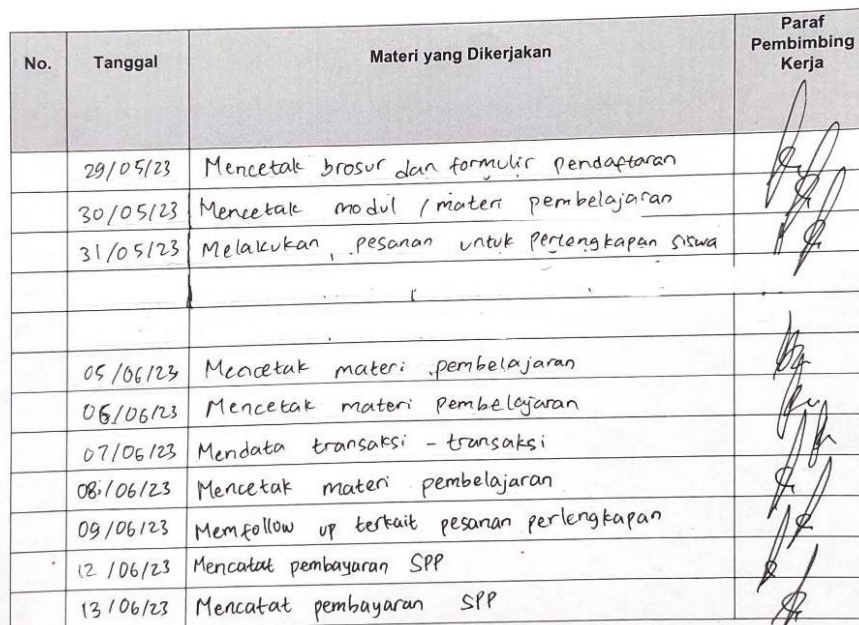 No. Tanggal Materi yang Dikerjakan Paraf Pembimbing Kerja
29/05/23 Mencetak brosur dan formulir pendaftaran
30/05/23 Mencetak modul / materi pembelajaran
31/05/23 Melakukan pesanan untuk perlengkapan siswa
05/06/23 Mencetak materi pembelajaran
06/06/23 Mencetak materi pembelajaran
07/06/23 Mendata transaksi - transaksi
08/06/23 Mencetak materi pembelajaran
09/06/23 Memfollow up terkait pesanan perlengkapan
12/06/23 Mencatat pembayaran SPP
13/06/23 Mencatat pembayaran SPP